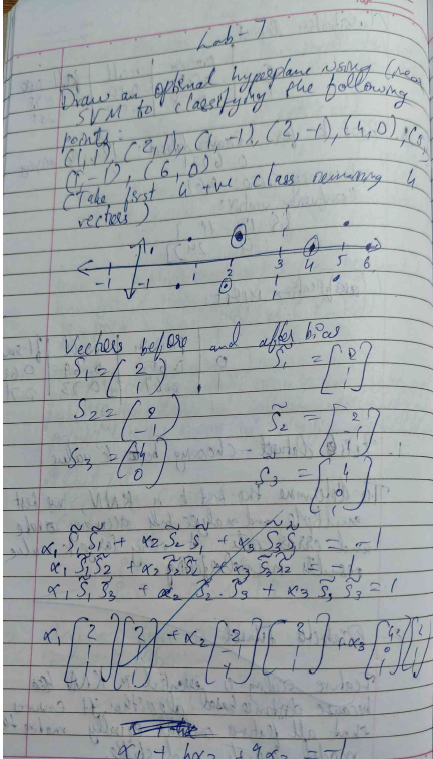 Lab - 7
Draw an optimal hyperplane using linear
SVM to classifying the following
points:
(1,1), (2,1), (1,-1), (2,-1), (4,0), (5,
-1), (6,0)
(Take first 4 +ve class remaining 4
vectors)
-1 -1 1 2 3 4 5 6
Vectors before and after bias
S1 = (2 1) S̃1 = [2 1 1]
S2 = (2 -1) S̃2 = [2 -1 1]
S3 = (4 0) S̃3 = [4 0 1]
α1 S̃1 S̃1 + α2 S̃2 S̃1 + α3 S̃3 S̃1 = -1
α1 S̃1 S̃2 + α2 S̃2 S̃2 + α3 S̃3 S̃2 = -1
α1 S̃1 S̃3 + α2 S̃2 . S̃3 + α3 S̃3 S̃3 = 1
α1 [2 1 1] [2 1 1] + α2 [2 -1 1] [2 1 1] + α3 [4 0 1] [2 1 1]